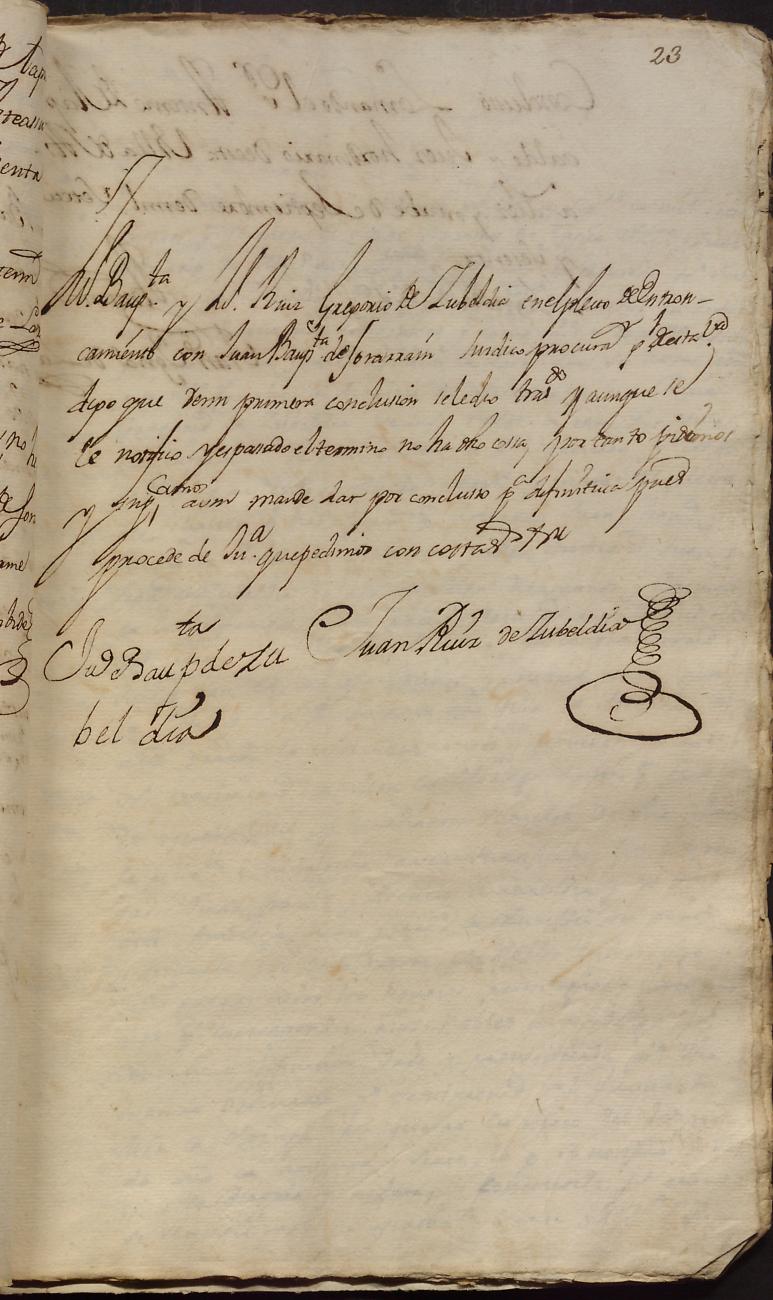 23
Ju. Baup.ta y Ju. Ruiz Gregorio de Zubeldia en el pleito de Entron-
camiento con Juan Baup.ta de Sorarrain Sindico procurad.r desta
digo que demi primera conclusion seledio tras.do y aunque se
le notifico y es pasado el termino no ha dho cossa, por tanto pidimos
y sup.camos aum mande dar por conclusso p.a difinitiva pues
procede de Ju.a que pedimos con costas
Ju.o Baup.ta de Zu
bel dia
Juan Ruiz de Zubeldia